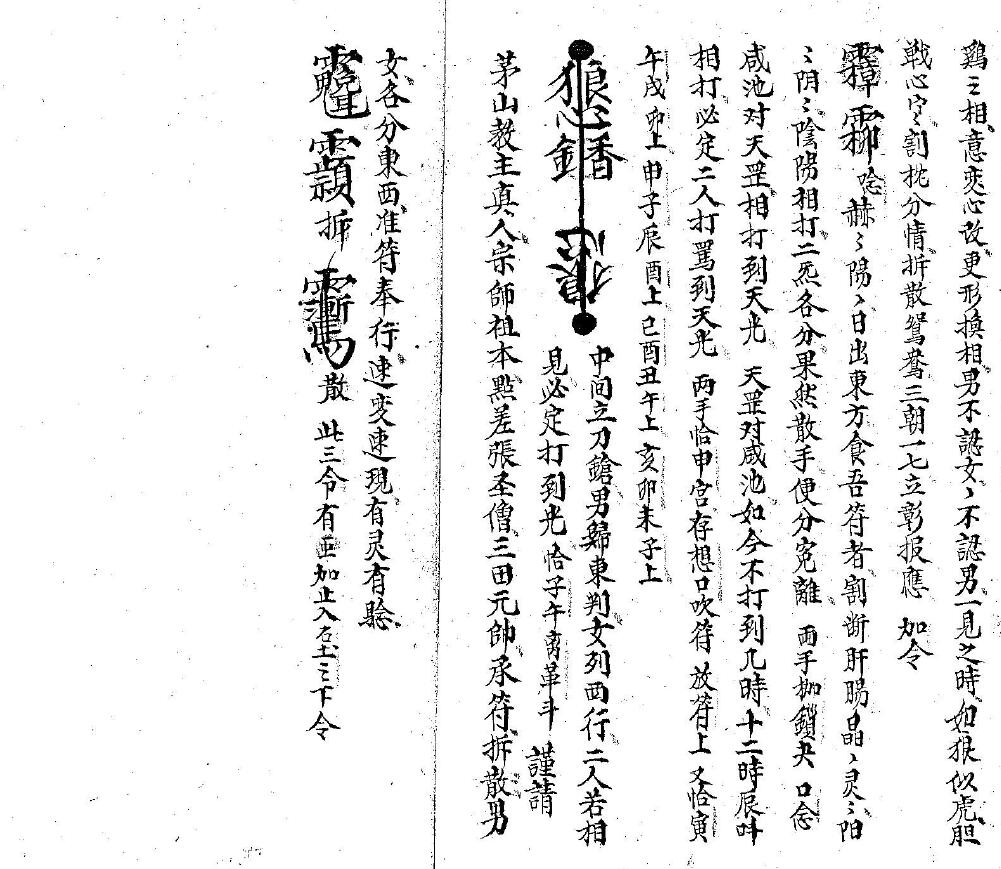 鷄〻相意变心改更形换相男不認女〻不認男一見之時如狠似虎胆
戦心寒割枕分情拆散鴛鴦三朝一七立彰报應 加令
唸赫〻陽〻日出東方食吾符者割断肝腸晶〻灵〻阳
〻阴〻陰陽相打二炁各分果然散手便分寃離 两手枷鎖夬 口念
咸池对天罡相打到天光 天罡对咸池如今不打到几時十二時辰呌
相打必定二人打罵到天光 两手恰申宫存想口吹符 放符上 又恰寅
午戌卯上申子辰酉上巳酉丑午上亥卯未子上
中间立刀鎗男歸東判女列西行二人若相
見必定打到光 恰子午 謹請
茅山教主真人宗師祖本點差張圣僧三田元帥承符拆散男
女各分東西准符奉行速变速現有灵有騐
拆 散 此三令有 加止入 下令